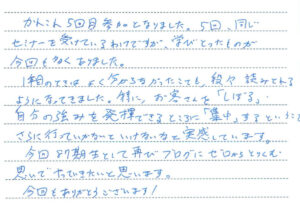 かんれん5回目参加となりました。5回、同じ
セミナーを受けているわけですが、学びとったものが
今回も多くありました。
1相のときはよく分からなかったことも、段々読みとれる
ようになってきました。特に、お客さんを「しぼる」
自分の強みを発揮できるところに「集中」するということ
さらに行っていかないといけないなと実感しています。
今回87期生として再びブログにゼロからとりくむ
思いでやっていきたいと思います。
今回もありがとうございます!